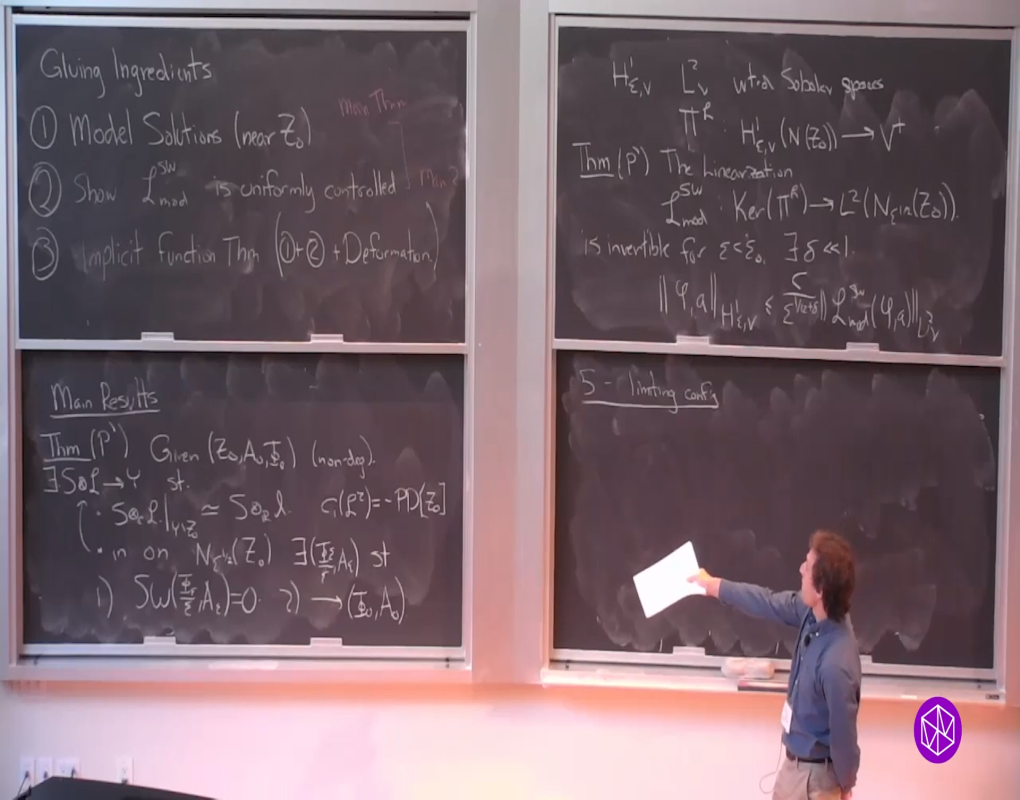 Gluing Ingredients
① Model Solutions (near Z₀)
Main Thm
② Show ℒ^{SW}_{mod} is uniformly controlled
③ Implicit Function Thm (①+② + Deformation)
Main Results
Thm (P') Given (Z₀, A₀, Φ₀) (non-deg).
∃ S⊗ℒ → Y st.
• S⊗ℒ|_{Y∖Z₀} ≃ S⊗_ℝ ℓ. c₁(ℒ²) = -PD[Z₀]
• on N_{ε^{1/2}}(Z₀) ∃ (Φ_ε/ε, A_ε) st
1) SW(Φ_ε/ε, A_ε) = 0 2) → (Φ₀, A₀).
H¹_{ε,ν} L²_ν wtd Sobolev spaces
Π^R : H¹_{ε,ν}(N(Z₀)) → V⁺
Thm (P') The Linearization
ℒ^{SW}_{mod} : Ker(Π^R) → L²(N_{ε^{1/2}}(Z₀)).
is invertible for ε<ε₀, ∃ δ ≪ 1.
‖φ,a‖_{H¹_{ε,ν}} ≤ C/ε^{1/12+δ} ‖ℒ^{SW}_{mod}(φ,a)‖_{L²_ν}
5 - limiting config